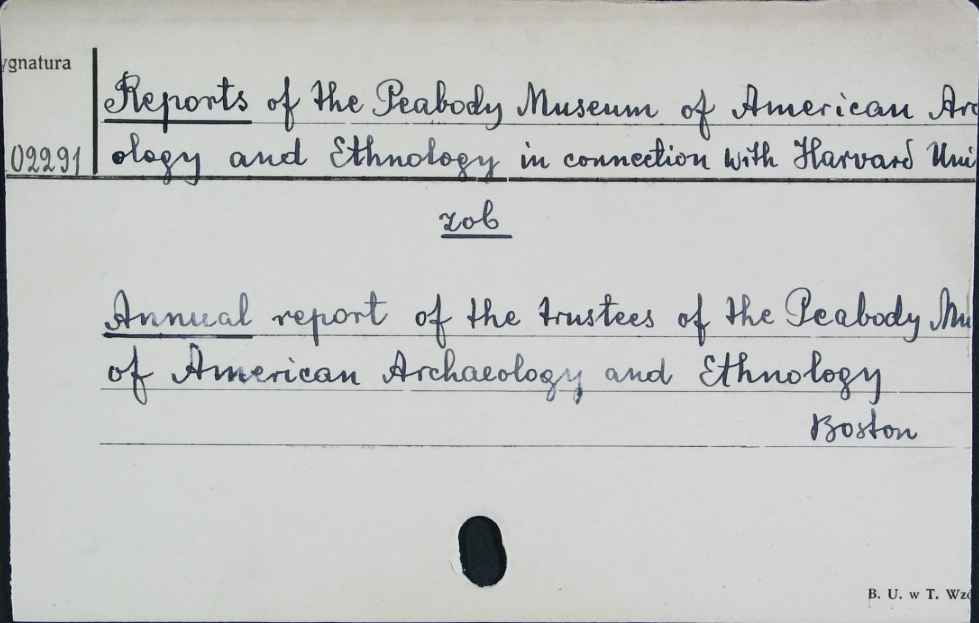 ygnatura
Reports of the Peabody Museum of American Arc
02291
ology and Ethnology in connection with Harvard Uni
zob
Annual report of the trustees of the Peabody Mu
of American Archaeology and Ethnology
Boston
B. U. w T. Wzó